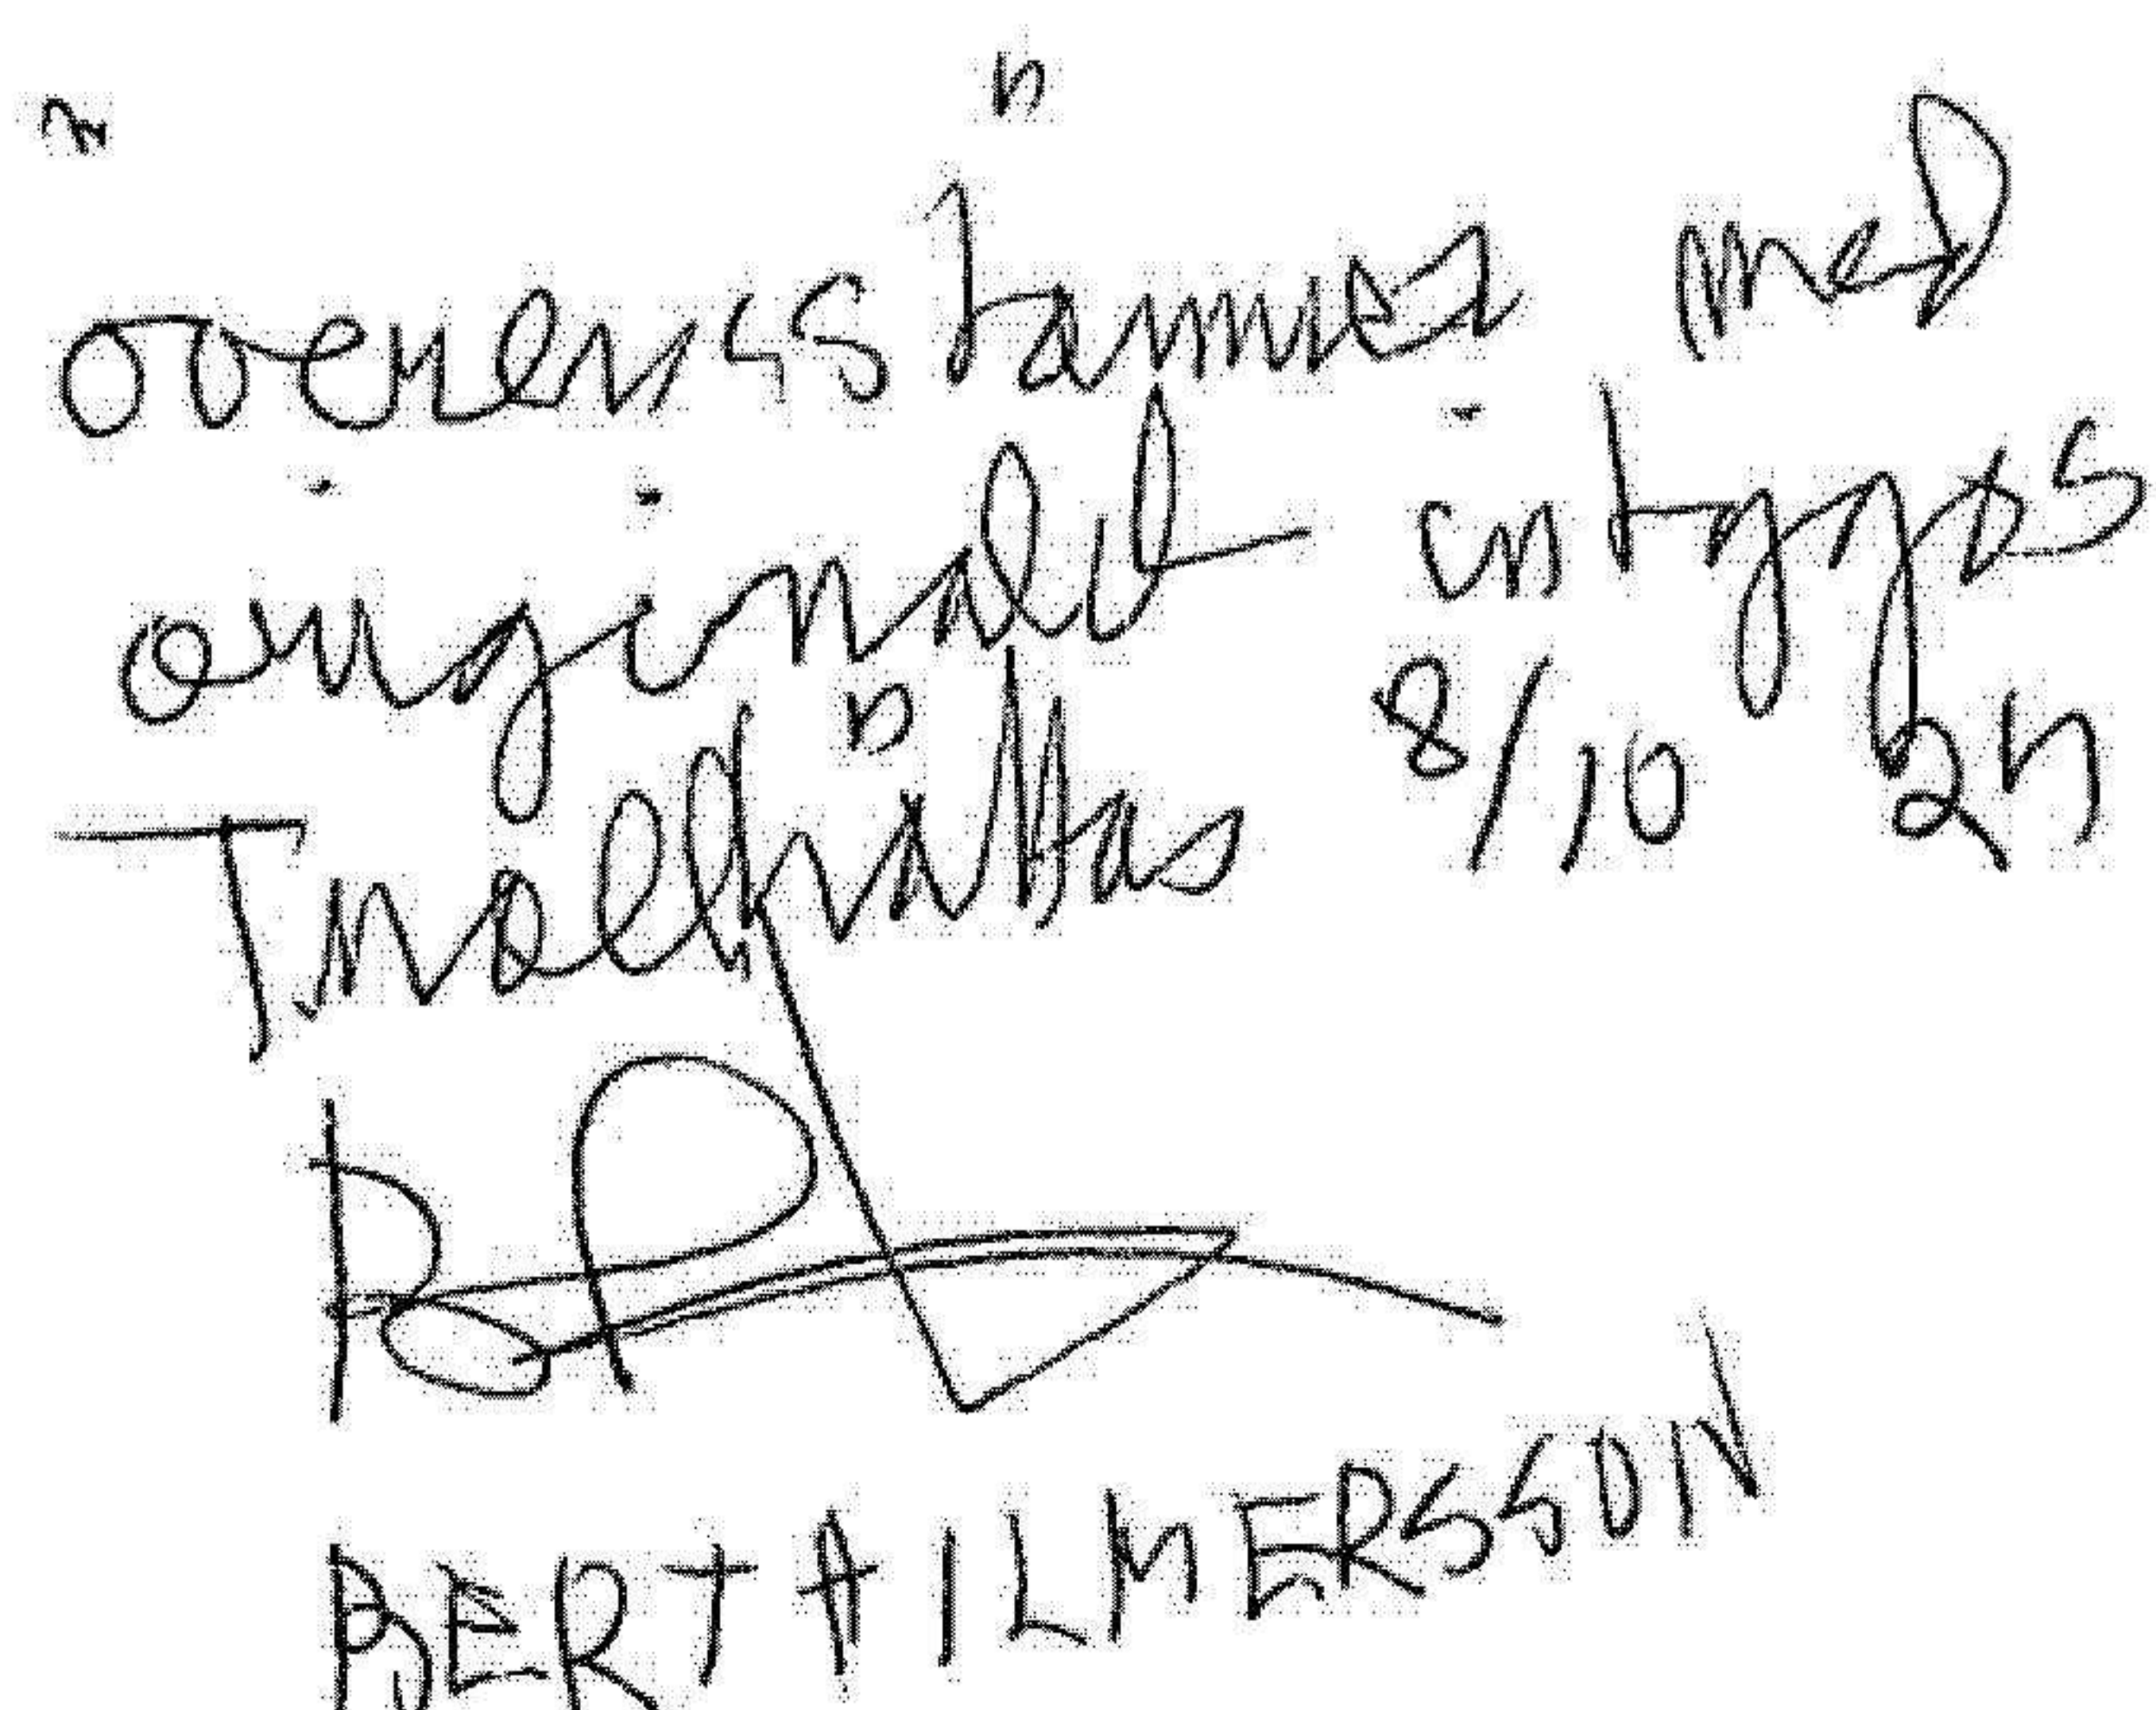 överensstämmer med
originalet intygas
Trollhättan 8/10 25
BERT HILMERSSON